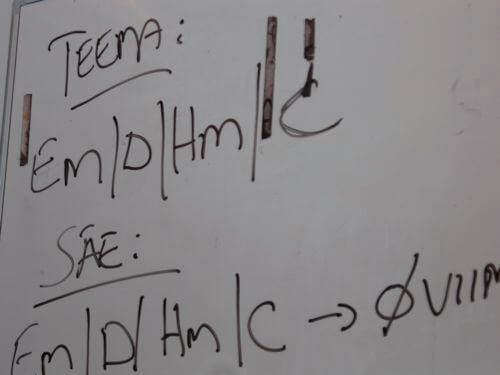 TEEMA:
Em/D/Hm/C
SÄE:
Em/D/Hm/C → ØVIIM